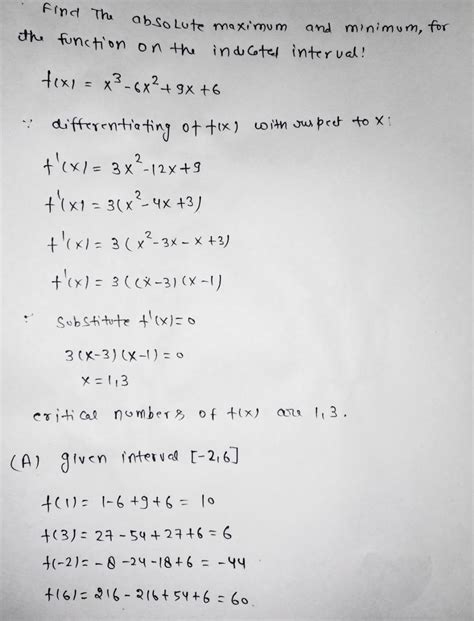 Find The absolute maximum and minimum, for
the function on the indicated interval!
f(x) = x³-6x²+9x+6
∵ differentiating of f(x) with respect to x:
f'(x) = 3x²-12x+9
f'(x) = 3(x²-4x+3)
f'(x) = 3(x²-3x-x+3)
f'(x) = 3((x-3)(x-1)
∵ Substitute f'(x)=0
3(x-3)(x-1)=0
x=1,3
critical numbers of f(x) are 1,3.
(A) given interval [-2,6]
f(1) = 1-6+9+6 = 10
f(3) = 27-54+27+6 = 6
f(-2) = -8-24-18+6 = -44
f(6) = 216-216+54+6 = 60.